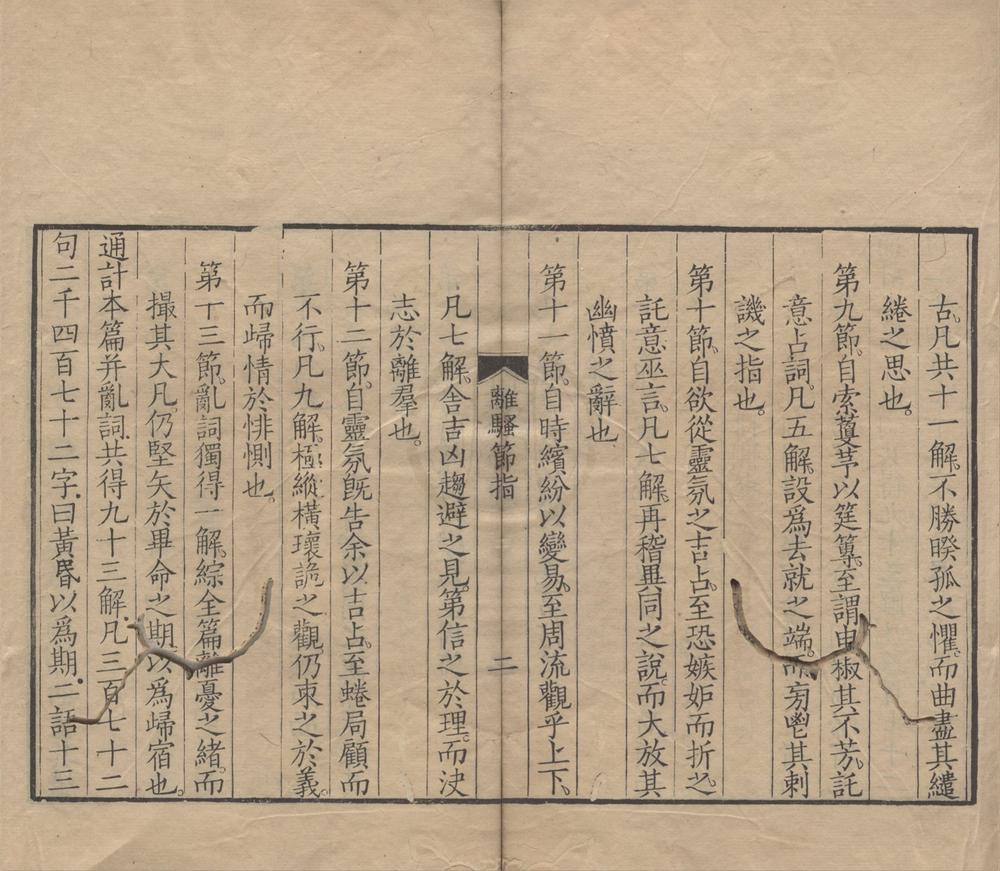 古。凡共十一解。不勝睽孤之懼。而曲盡其繾
綣之思也。
第九節。自索藑茅以筳篿。至謂申椒其不芳。託
意占詞。凡五解。設爲去就之端。而旁鬯其刺
譏之指也。
第十節。自欲從靈氛之吉占。至恐嫉妒而折之。
託意巫言。凡七解。再稽異同之說。而大放其
幽憤之辭也
第十一節。自時繽紛以變易。至周流觀乎上下。
凡七解。舍吉凶趨避之見。第信之於理。而決
志於離羣也。
離騷節指
二
第十二節。自靈氛旣告余以吉占。至蜷局顧而
不行。凡九解。極縱橫瓌詭之觀。仍束之於義。
而歸情於悱惻也。
第十三節。亂詞獨得一解。綜全篇離憂之緒。而
撮其大凡。仍堅矢於畢命之期。以爲歸宿也。
通計本篇并亂詞。共得九十三解。凡三百七十二
句二千四百七十二字。曰黃昏以爲期。二語十三